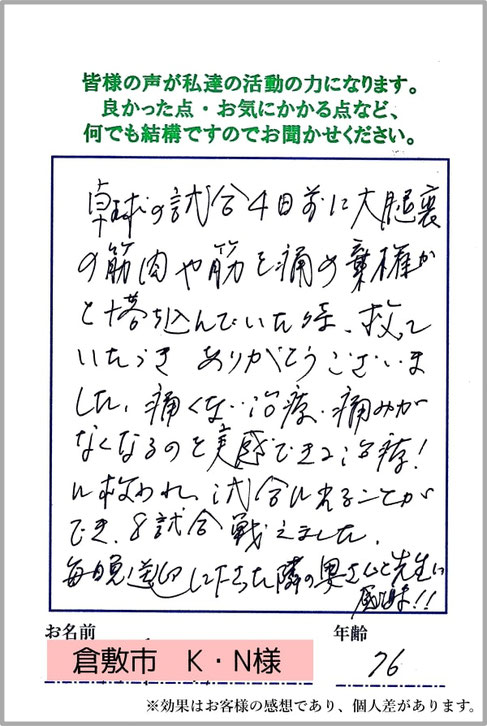 皆様の声が私達の活動の力になります。
良かった点・お気にかかる点など、
何でも結構ですのでお聞かせください。
卓球の試合4日前に大腿裏
の筋肉や筋を痛め棄権か
と落ち込んでいた時、救って
いただき ありがとうございま
した。痛くない治療、痛みが
なくなるのを実感できる治療!
に救われ、試合に出ることが
でき、8試合戦えました。
毎晩送迎して下さった隣の奥さんと先生に
感謝!!
お名前
年齢
倉敷市 K・N様
76
※効果はお客様の感想であり、個人差があります。